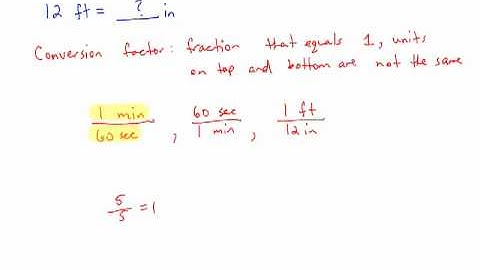 12 ft = ? in
Conversion factor: fraction that equals 1, units
on top and bottom are not the same
1 min / 60 sec , 60 sec / 1 min , 1 ft / 12 in
5 / 5 = 1